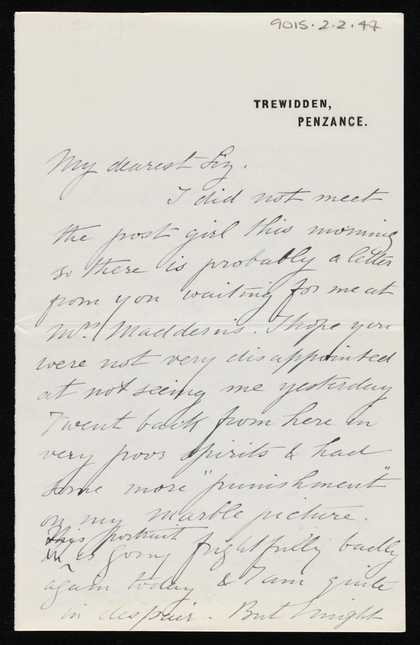 9015.2.2.44
TREWIDDEN,
PENZANCE.
My dearest Liz.
I did not meet
the post girl this morning
so there is probably a letter
from you waiting for me at
Mrs Maddern's. I hope you
were not very disappointed
at not seeing me yesterday
I went back from here in
very poor spirits & had
some more "punishment"
on my marble picture.
This portrait
is going frightfully badly
again today & I am quite
in despair. But I might